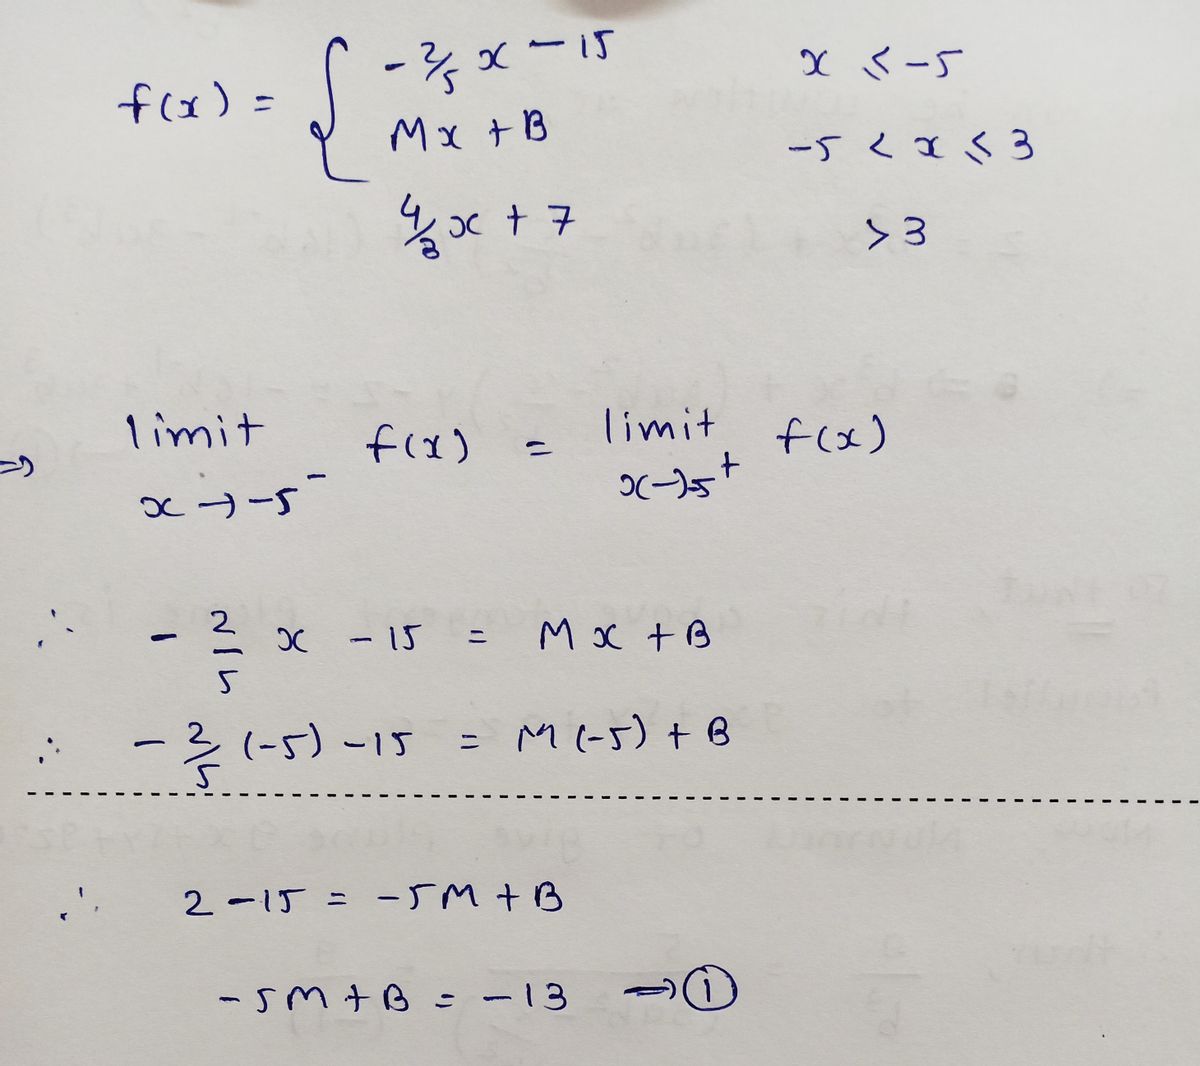 f(x) = { -2/5 x - 15    x ≤ -5
Mx + B    -5 < x ≤ 3
4/3 x + 7    > 3
⇒ limit x → -5⁻ f(x) = limit x → -5⁺ f(x)
∴ - 2/5 x - 15 = Mx + B
∴ - 2/5 (-5) - 15 = M(-5) + B
∴ 2 - 15 = -5M + B
-5M + B = -13 ⇒ ①